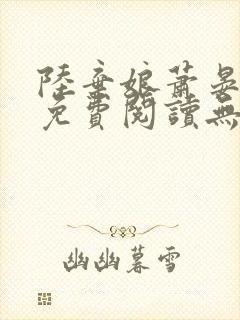 陸棄娘蕭晏
免費閱讀無
幽幽暮雪